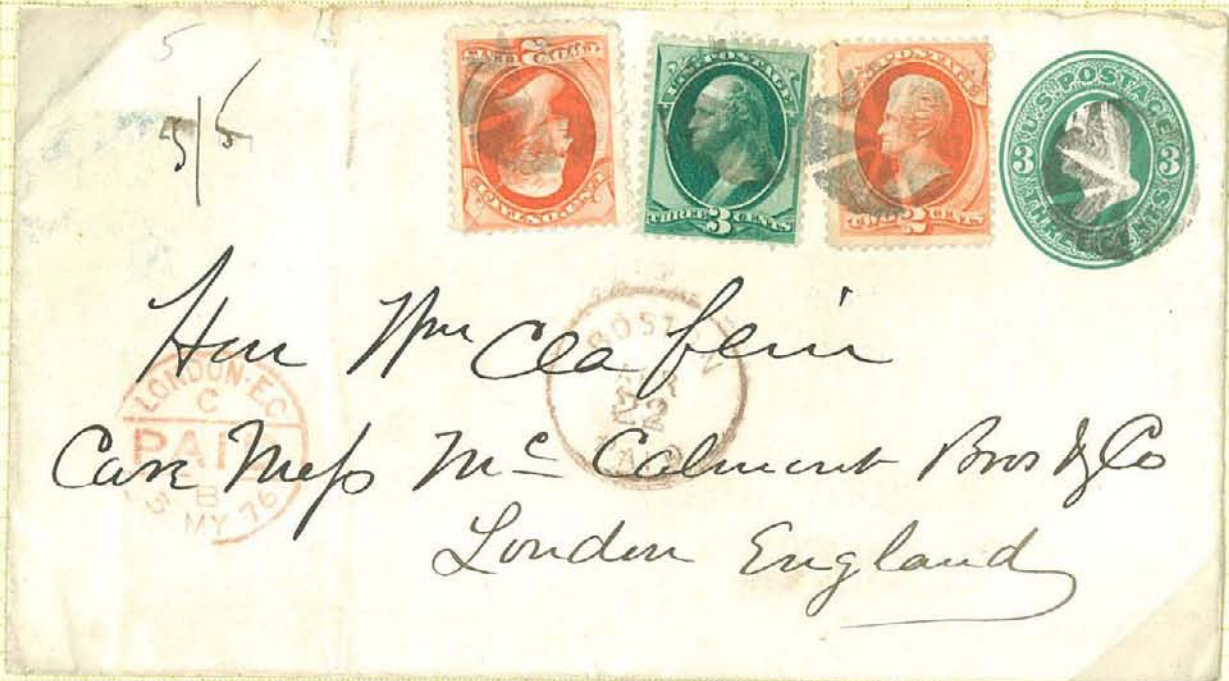 5
5/5
U.S. POSTAGE
THREE 3 CENTS
U.S. POSTAGE
TWO 2 CENTS
U.S. POSTAGE
3 3
THREE CENTS
Hon Wm Claflin
BOSTON
22
PAID
LONDON·E.C
C
PAID
3 B
MY 76
Care Mess Mc Calmont Bros & Co
London England